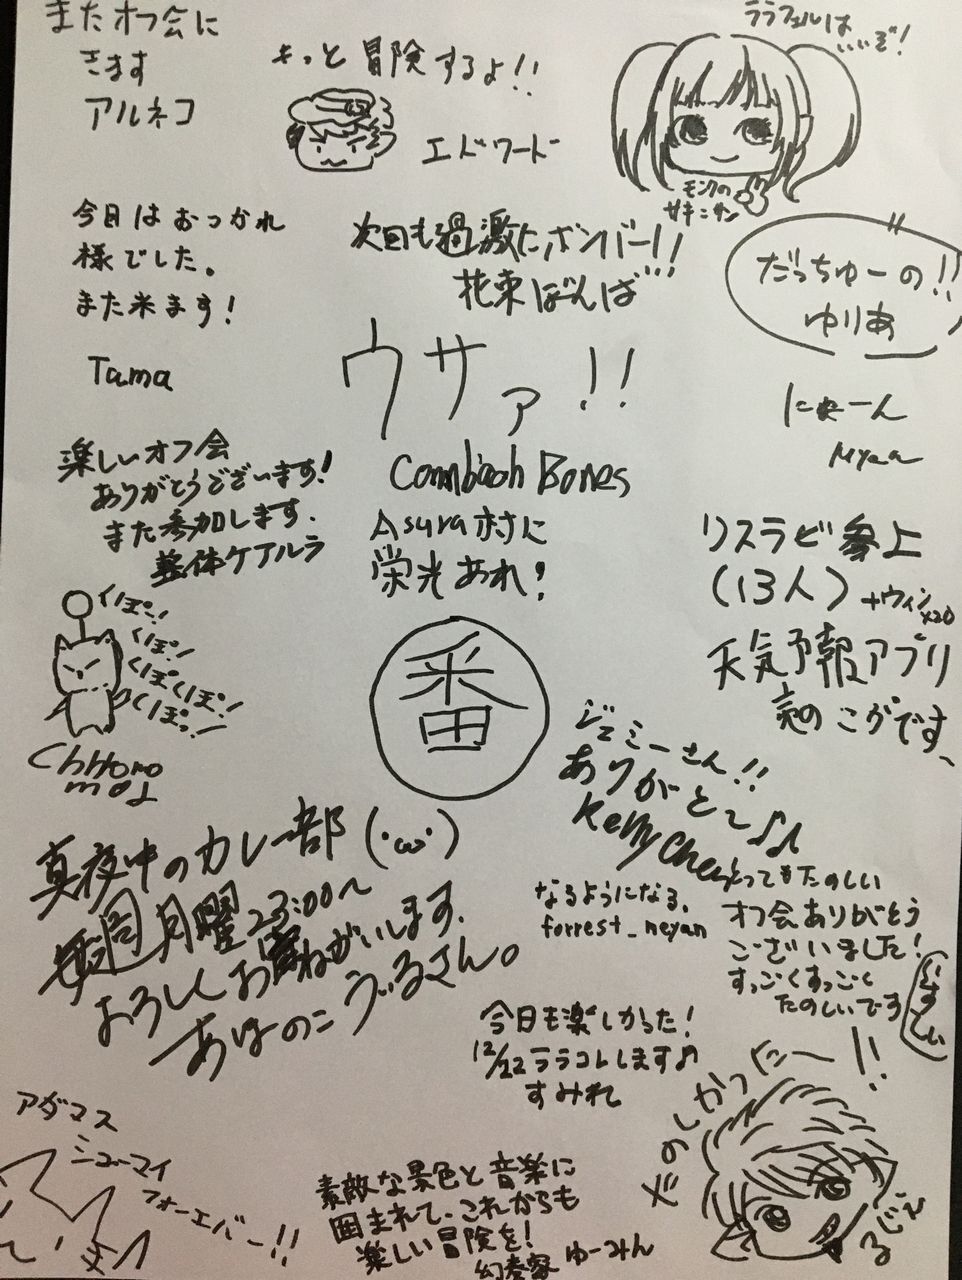 またオフ会に
きます
アルネコ
もっと冒険するよ!!
エドワード
ララフェルは
いいぞ!
モンクの
サキニサン
今日はおつかれ
様でした。
また来ます!
Tama
次回も過激にボンバー!!
花束ぼんば!!!
だっちゅーの!!
ゆりあ
ウサァ!!
にゃーん
楽しいオフ会
ありがとうございます!
また参加します.
整体ケアルラ
Bones
Asura村に
栄光あれ!
リスラビ参上
(13人)+ウィンx20
天気予報アプリ
のこがです、
くぽ!
くぽ!
くぽくぽ!
くぽ!
番
ジェミーさん!!
ありがと〜♪♪
Kelly Chen
真夜中のカレー部(・ω・)
毎週月曜23:00〜
よろしくお願いします.
あほのこ うぃるさん。
なるようになる.
forrest_neyan
とってもたのしい
オフ会ありがとう
ございました!
すっごくすっごく
たのしいです
今日も楽しかった!
12/22ララコレします♪
すみれ
たのしかったー!!
るじぇ
アダマス
ミューマイ
フォーエバー!!
素敵な景色と音楽に
囲まれて、これからも
楽しい冒険を!
幻奏家 ゆーみん